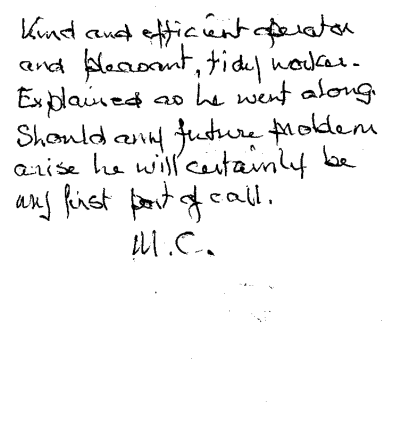 Kind and efficient operator
and pleasant, tidy worker.
Explained as he went along.
Should any future problem
arise he will certainly be
my first port of call.
M.C.